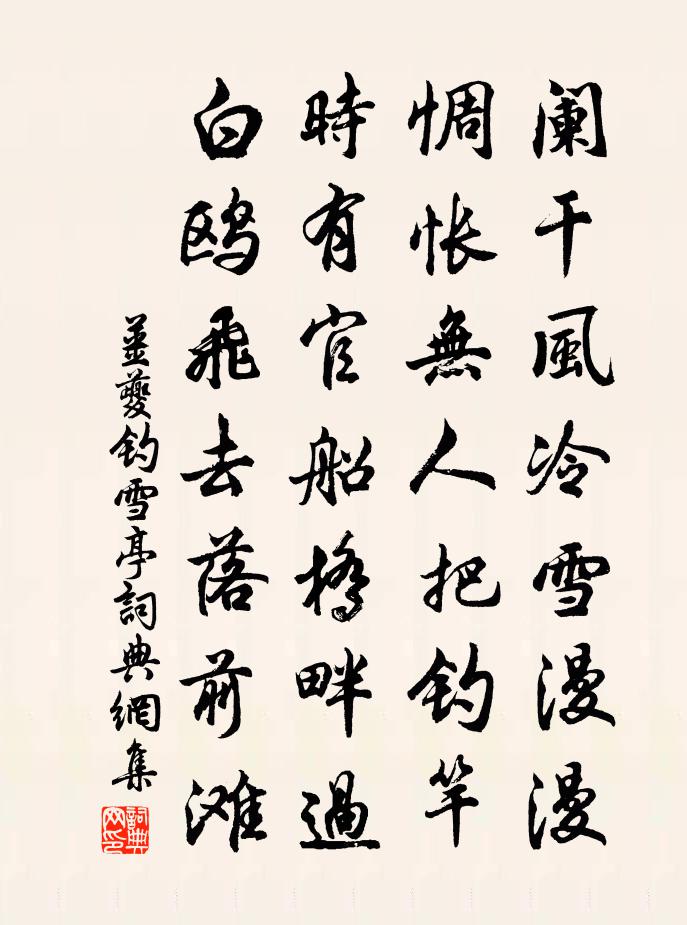 阑干風冷雪漫漫
惆悵無人把钓竿
時有官船橋畔過
白鸥飛去落前滩
姜夔钓雪亭詞典網集
詞典
网印